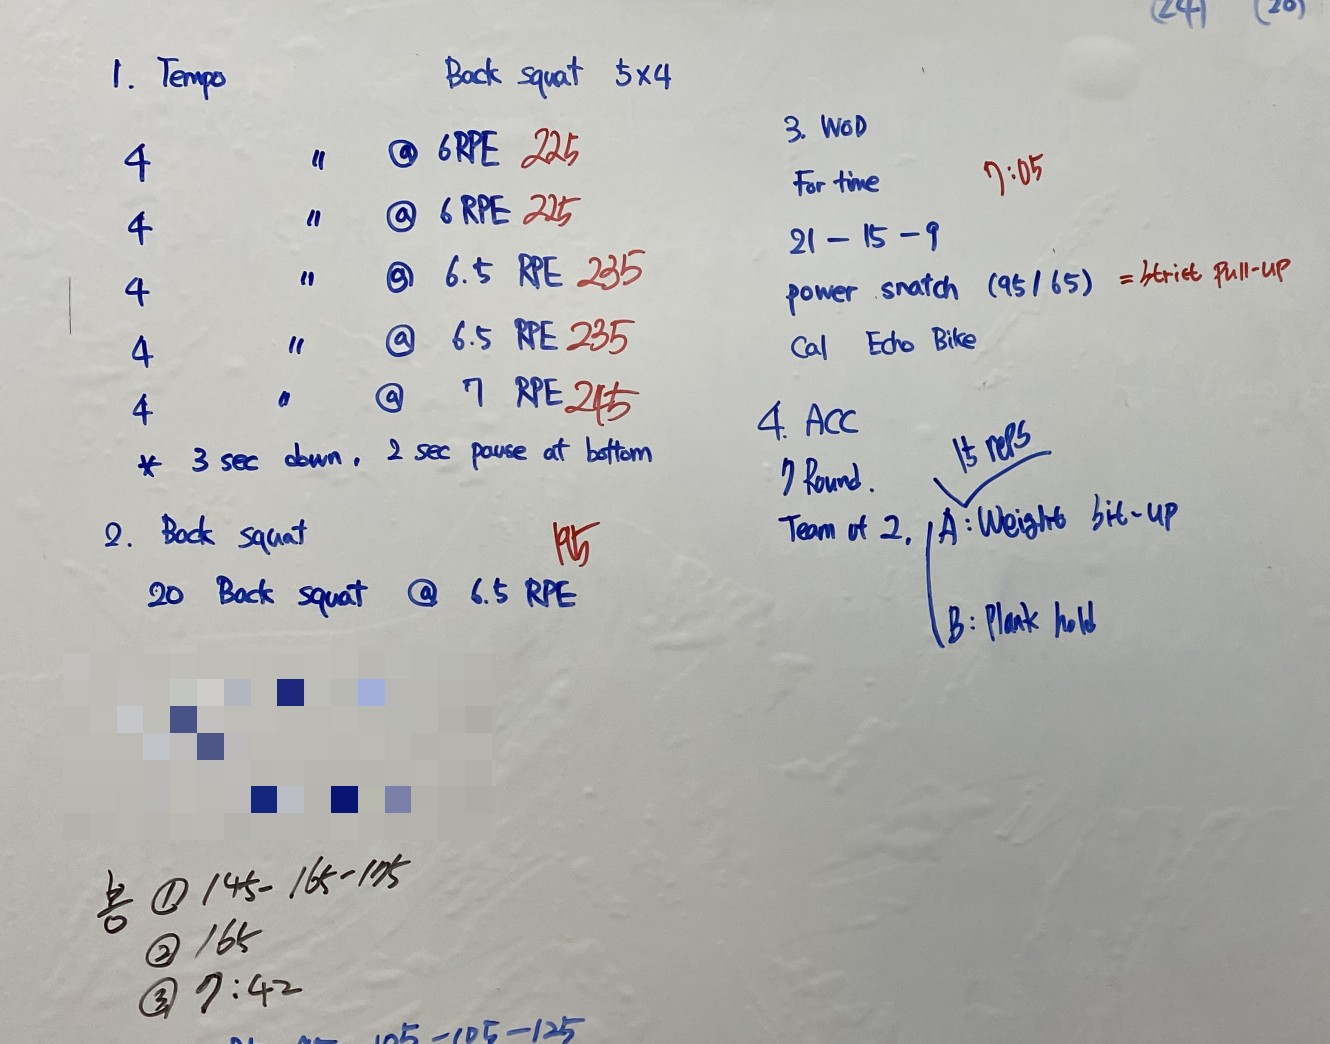 (24) (20)
1. Tempo Back squat 5x4
4 " @ 6RPE 225
4 " @ 6 RPE 225
4 " @ 6.5 RPE 235
4 " @ 6.5 RPE 235
4 " @ 7 RPE 245
* 3 sec down, 2 sec pause at bottom
2. Back squat 195
20 Back squat @ 6.5 RPE
3. WOD
For time 7:05
21 - 15 - 9
power snatch (95/65) = strict Pull-up
Cal Echo Bike
4. ACC
7 Round.
15 reps
Team of 2. A: Weight sit-up
B: Plank hold
봉 ① 145-165-175
② 165
③ 7:42
105-105-125